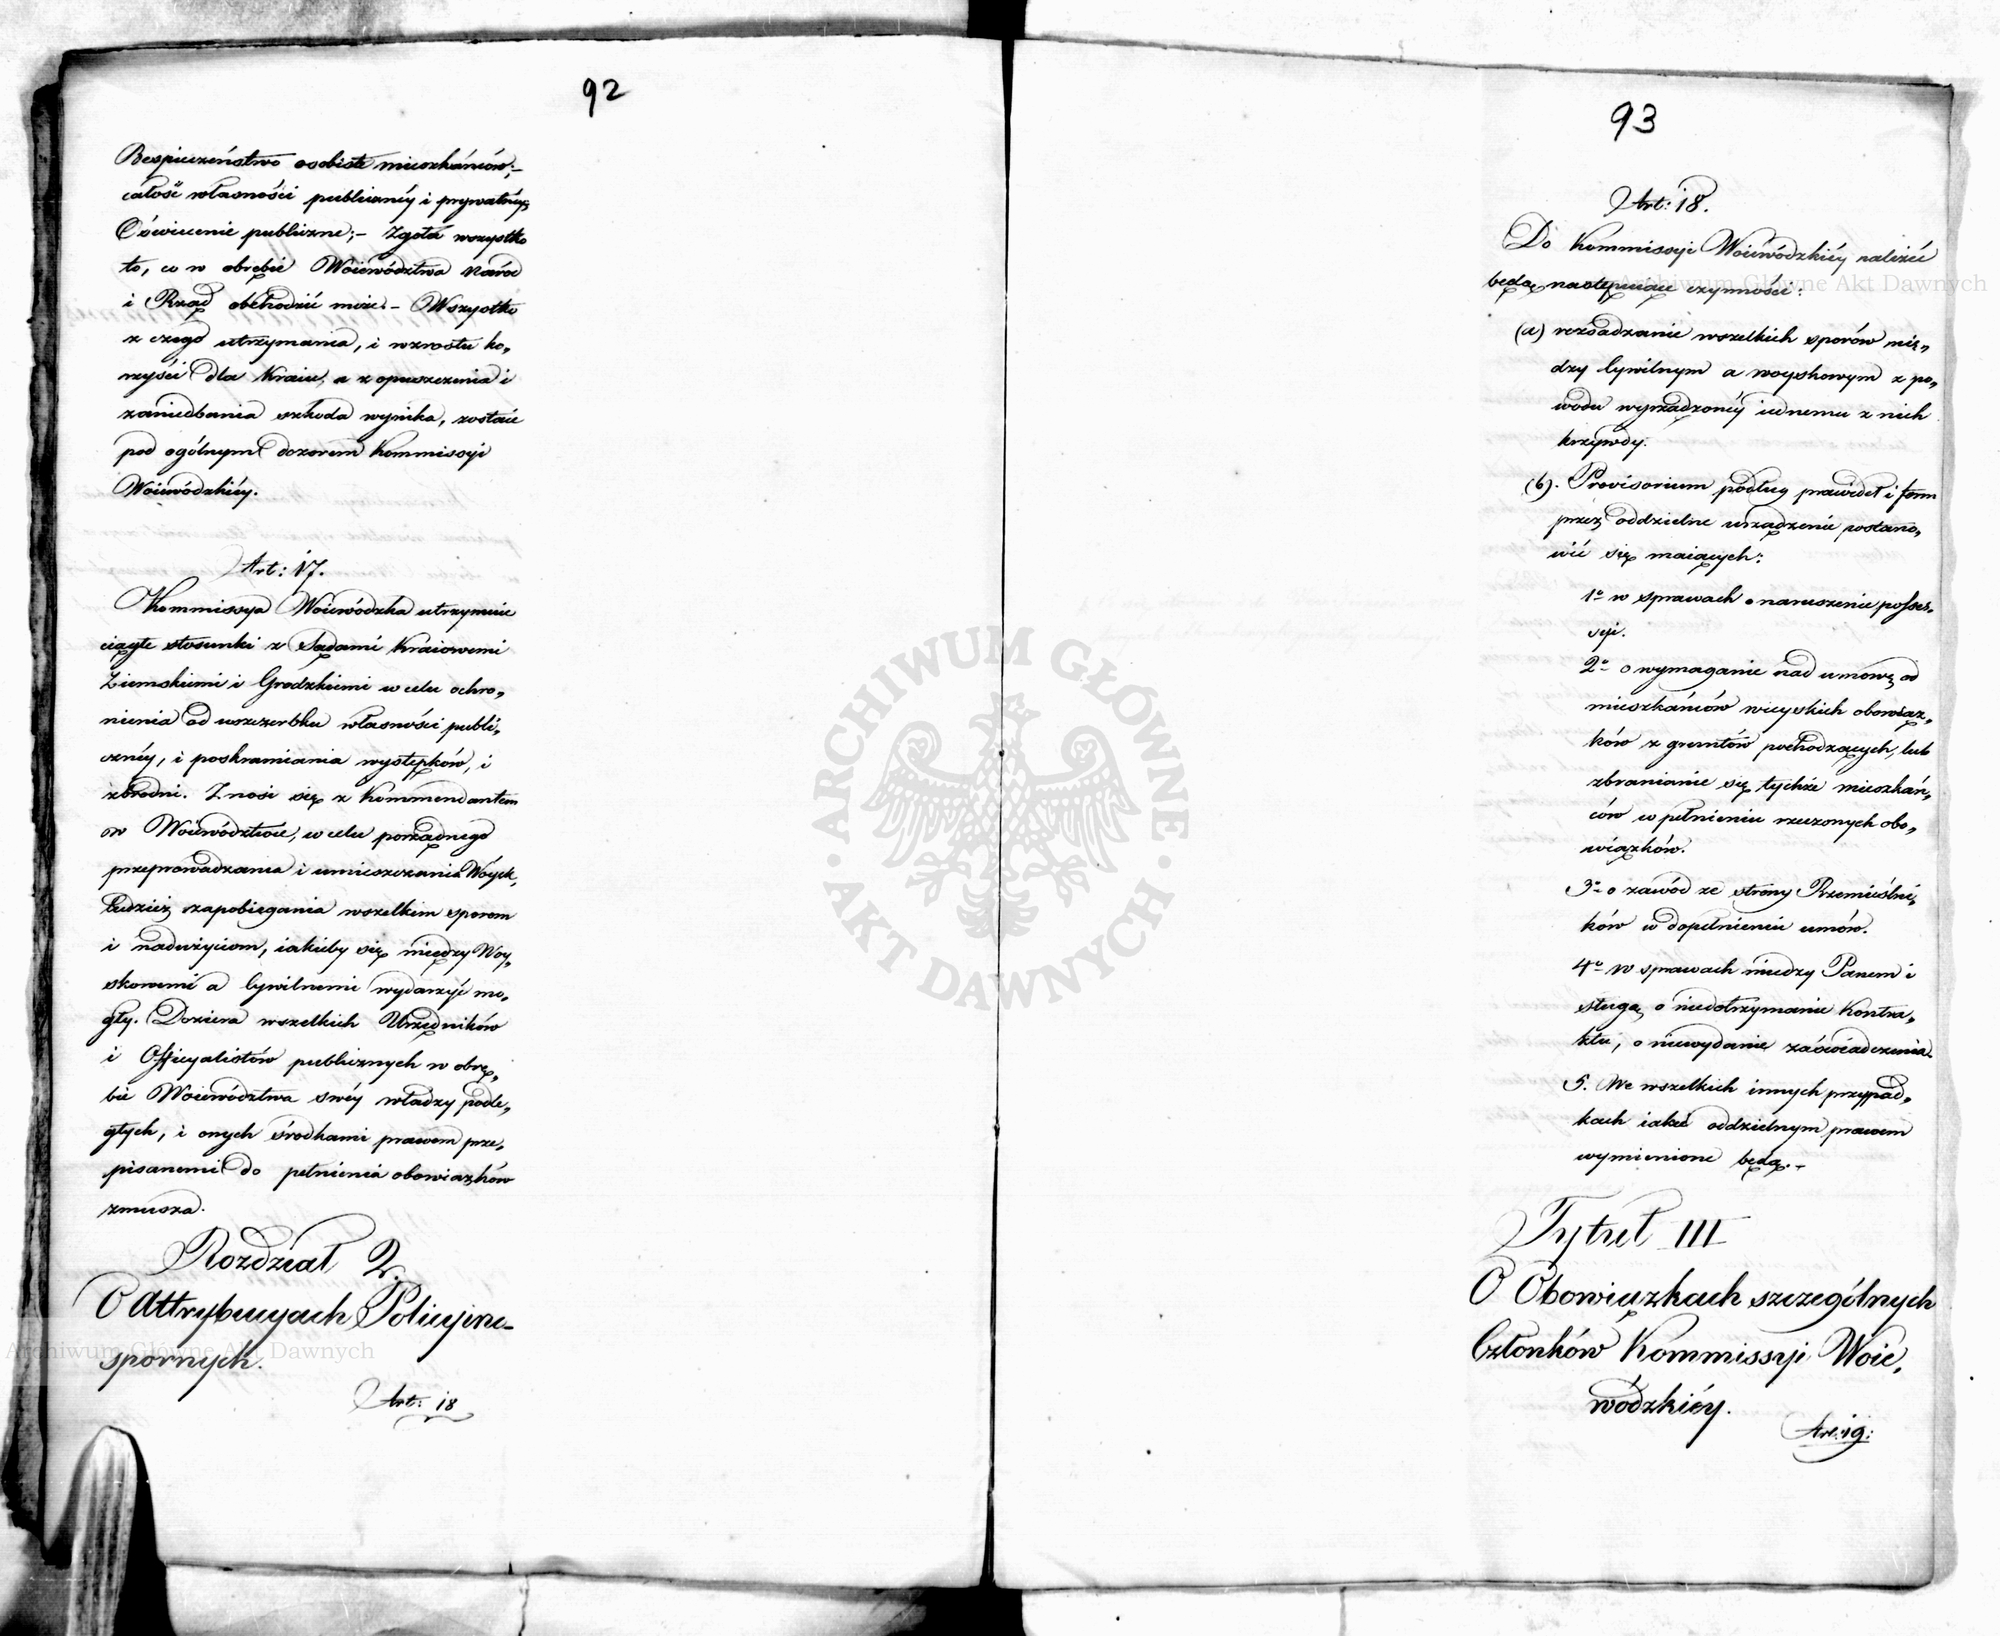 92
Bespieczeństwo osobiste mieszkańców;–
całość własności publicznéy i prywatnéy,
Oświecenie publiczne;– Zgoła wszystko
to, co w obrębie Woiewództwa Naród
i Rząd obchodzić może.– Wszystko
z czego utrzymania, i wzrostu ko„
rzyści dla Kraiu, a z opuszczenia i
zaniedbania szkoda wynika, zostaie
pod ogólnym dozorem Kommissyi
Woiewódzkiéy.
Art: 17.
Kommissya Woiewódzka utrzymuie
ciągłe stosunki z Sądami Kraiowemi
Ziemskiemi i Grodzkiemi w celu ochro„
nienia od uszczerbku własności publi„
cznéy, i poskramiania występków, i
zbrodni. Znosi się z Kommendantem
w Woiewództwie, w celu porządnego
przeprowadzania i umieszczania Woysk,
tudzież zapobiegania wszelkim sporom
i nadużyciom, iakieby się między Woy„
skowemi a Cywilnemi wydarzyć mo„
gły. Doziera wszelkich Urzędników
i Officyalistów publicznych w obrę„
bie Woiewództwa swéy władzy podle„
głych, i onych środkami prawem prze„
pisanemi do pełnienia obowiązków
zmusza.
Rozdział 2.
O Attrybucyach Policyino-
spornych.
Art: 18
93
Art: 18.
Do Kommissyi Woiewódzkiéy należeć
będą następuiące czynności:
(a) rozsądzanie wszelkich sporów mię„
dzy Cywilnym a woyskowym z po„
wodu wyrządzonéy iednemu z nich
krzywdy.
(b). Provisorium podług prawideł i form
przez oddzielne urządzenie postano„
wić się maiących:
1º w sprawach o naruszenie posses„
syi.
2º o wymaganie nad umowę od
mieszkańców wieyskich obowiąz„
ków z gruntów pochodzących, lub
zbranianie się tychże mieszkań„
ców w pełnieniu rzeczonych obo„
wiązków.
3º o zawód ze strony Rzemieślni„
ków w dopełnieniu umów.
4º w sprawach między Panem i
sługą o niedotrzymanie Kontra„
ktu, o niewydanie zaświadczenia.
5. We wszelkich innych przypad„
kach iakie oddzielnym prawem
wymienione będą.–
Tytuł III
O Obowiązkach szczególnych
Członków Kommissyi Woie„
wódzkiéy.
Art: 19:
ARCHIWUM GŁÓWNE
AKT DAWNYCH
Archiwum Główne Akt Dawnych
Archiwum Główne Akt Dawnych